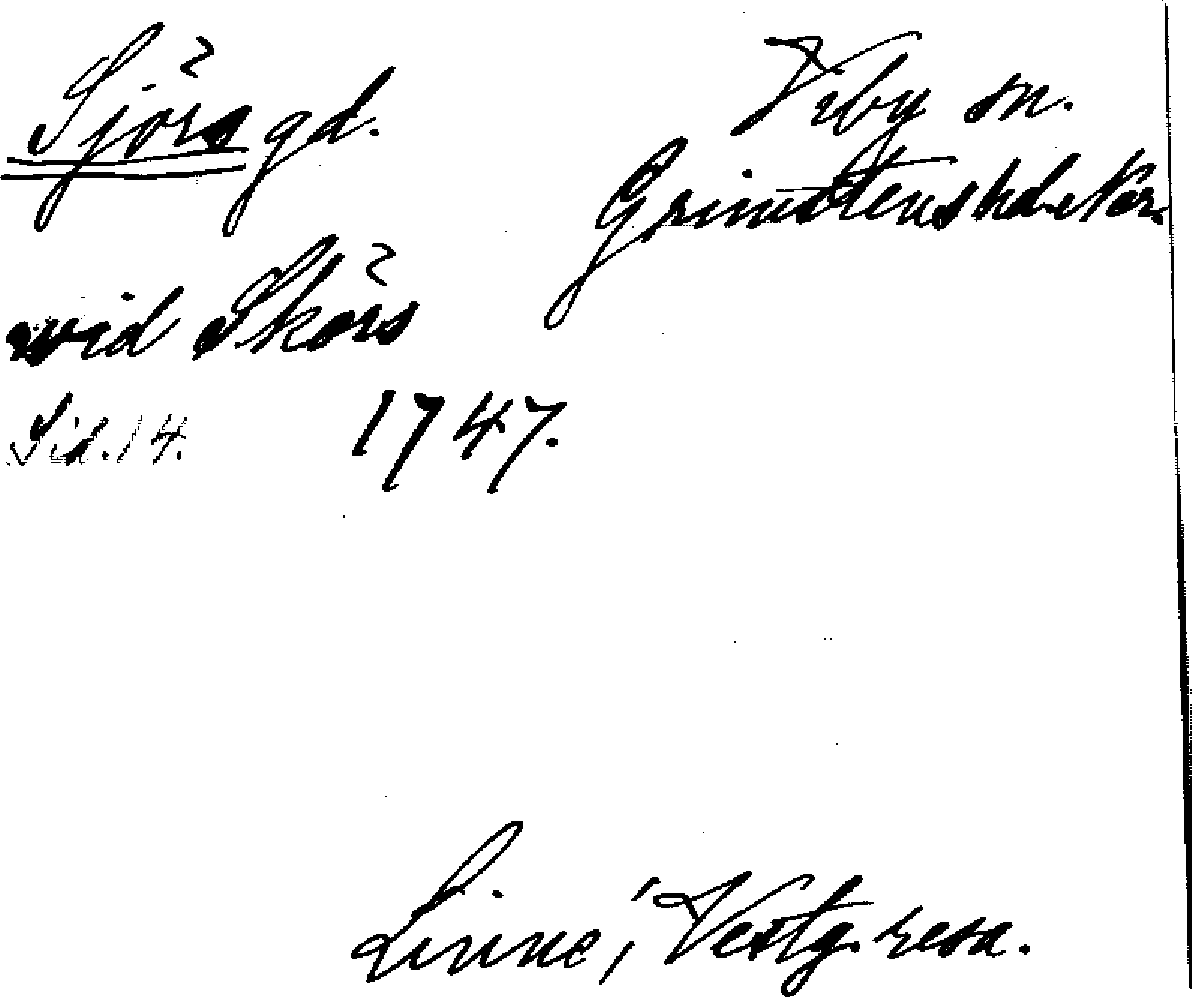 Sjörs gd.
Viby sn.
Grimstens hd. När.
wid Skörs
Sid. 14.
1747.
Linne, Vestg. resa.